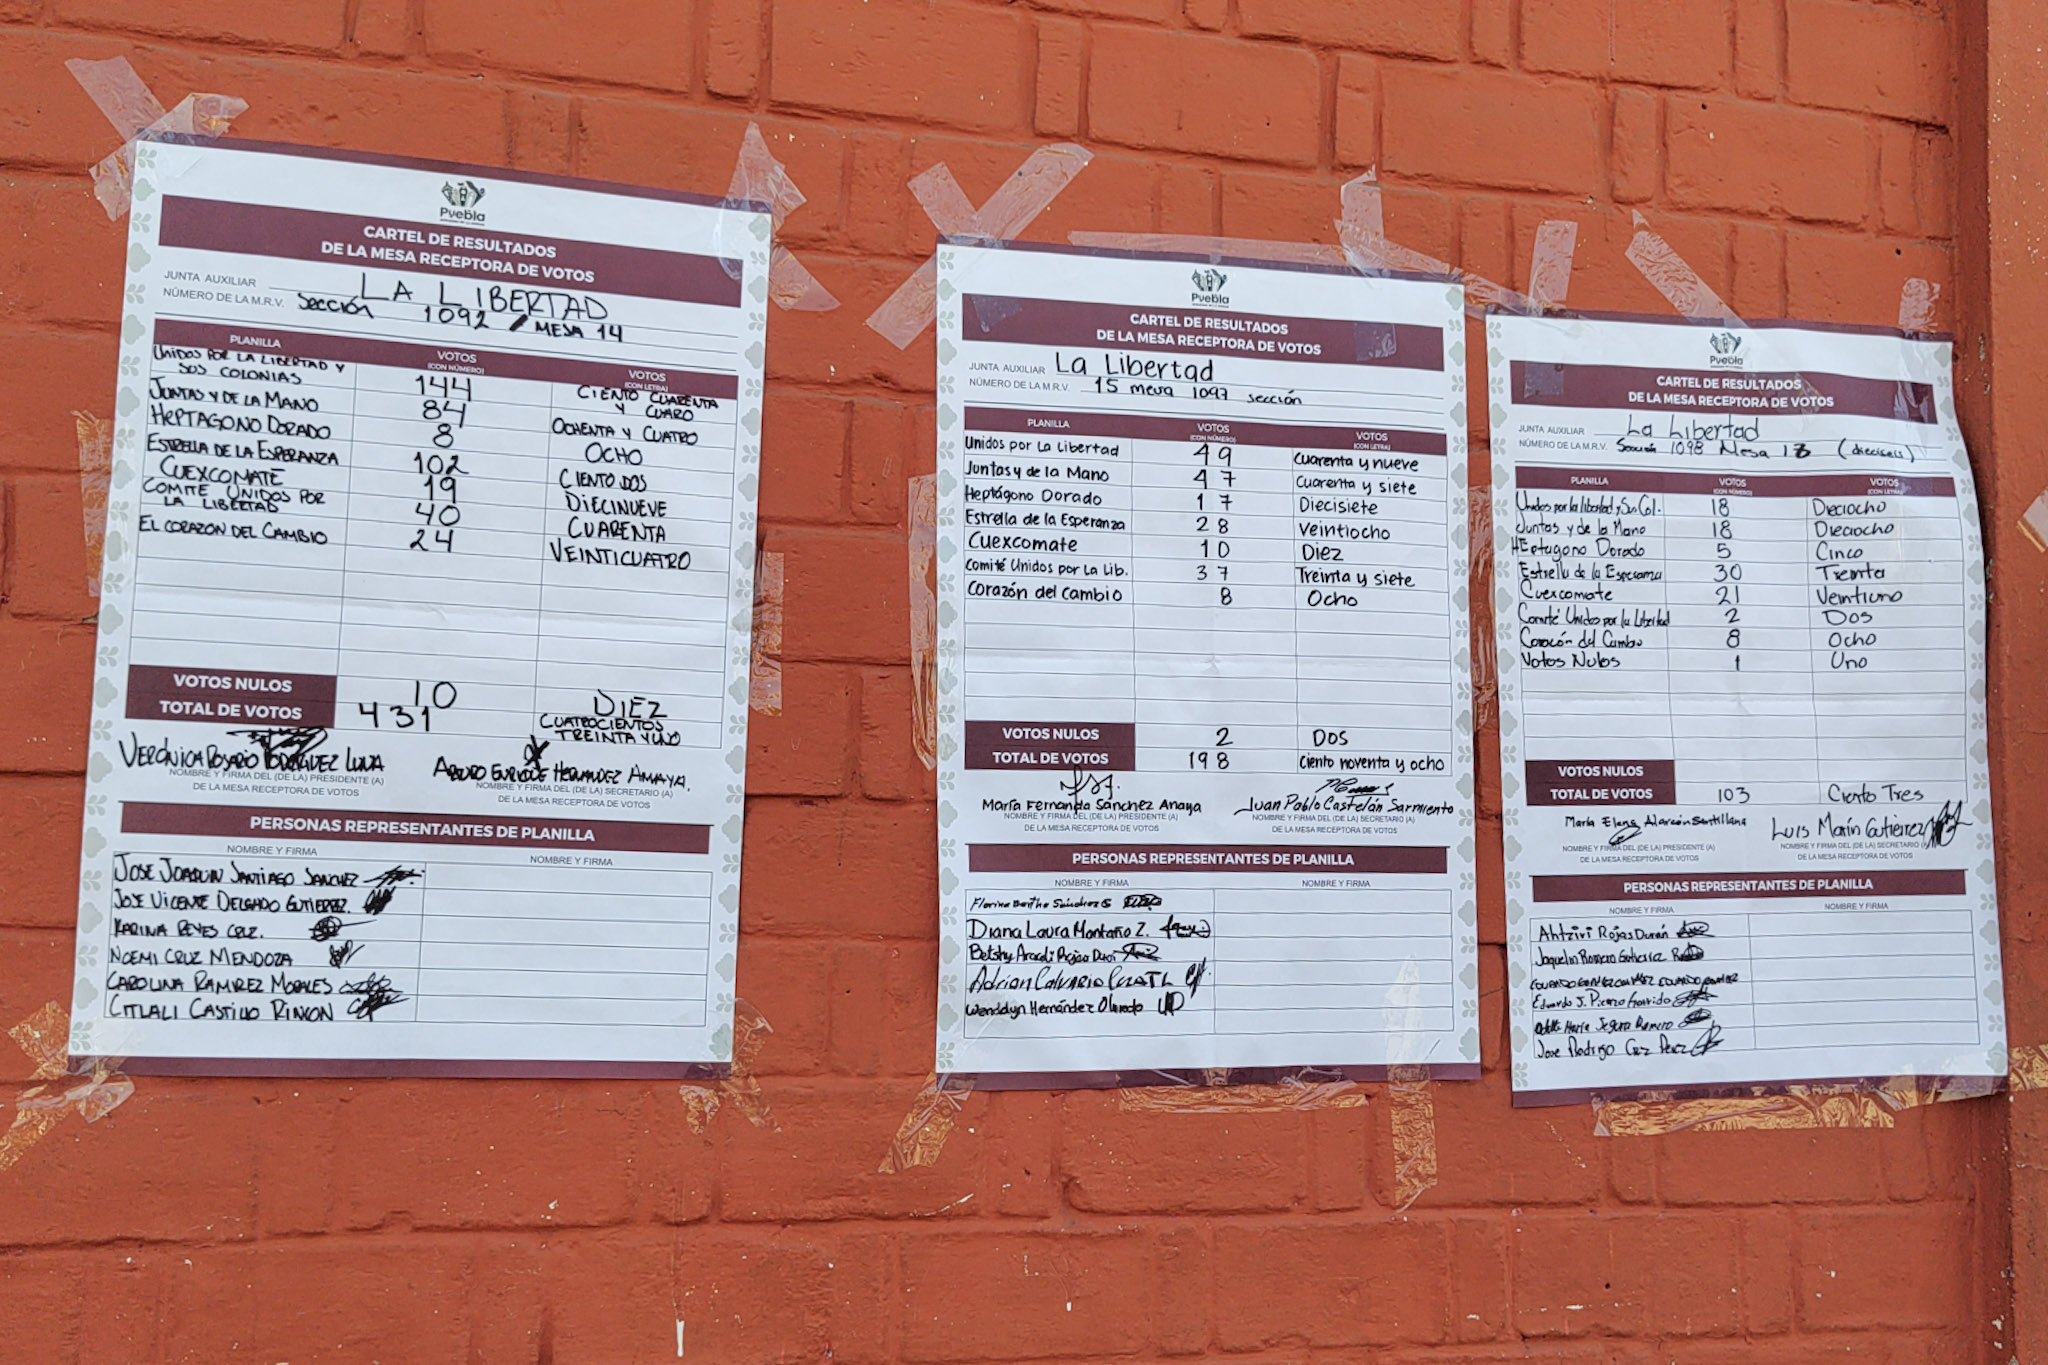 Puebla
CARTEL DE RESULTADOS
DE LA MESA RECEPTORA DE VOTOS
JUNTA AUXILIAR LA LIBERTAD
NÚMERO DE LA M.R.V. Sección 1092 / MESA 14
PLANILLA VOTOS (CON NÚMERO) VOTOS (CON LETRA)
UNIDOS POR LA LIBERTAD Y SUS COLONIAS 144 CIENTO CUARENTA Y CUARO
JUNTAS Y DE LA MANO 84 OCHENTA Y CUATRO
HEPTAGONO DORADO 8 OCHO
ESTRELLA DE LA ESPERANZA 102 CIENTO DOS
CUEXCOMATE 19 DIECINUEVE
COMITE UNIDOS POR LA LIBERTAD 40 CUARENTA
EL CORAZON DEL CAMBIO 24 VEINTICUATRO
VOTOS NULOS 10 DIEZ
TOTAL DE VOTOS 431 CUATROCIENTOS TREINTA Y UNO
VERÓNICA ROSARIO RODRIGUEZ LUNA ARTURO ENRIQUE HERNANDEZ AMAYA.
NOMBRE Y FIRMA DEL (DE LA) PRESIDENTE (A) NOMBRE Y FIRMA DEL (DE LA) SECRETARIO (A)
DE LA MESA RECEPTORA DE VOTOS DE LA MESA RECEPTORA DE VOTOS
PERSONAS REPRESENTANTES DE PLANILLA
NOMBRE Y FIRMA NOMBRE Y FIRMA
JOSE JOAQUIN SANTIAGO SANCHEZ
JOSE VICENTE DELGADO GUTIERREZ.
KARINA REYES CRUZ.
NOEMI CRUZ MENDOZA
CAROLINA RAMIREZ MORALES
CITLALI CASTILLO RINCON
Puebla
CARTEL DE RESULTADOS
DE LA MESA RECEPTORA DE VOTOS
JUNTA AUXILIAR La Libertad
NÚMERO DE LA M.R.V. 15 mesa 1097 sección
PLANILLA VOTOS (CON NÚMERO) VOTOS (CON LETRA)
Unidos por La Libertad 49 Cuarenta y nueve
Juntas y de la Mano 47 Cuarenta y siete
Heptágono Dorado 17 Diecisiete
Estrella de la Esperanza 28 Veintiocho
Cuexcomate 10 Diez
Comité Unidos por La Lib. 37 Treinta y siete
Corazón del Cambio 8 Ocho
VOTOS NULOS 2 DOS
TOTAL DE VOTOS 198 ciento noventa y ocho
María Fernanda Sánchez Anaya Juan Pablo Castelán Sarmiento
NOMBRE Y FIRMA DEL (DE LA) PRESIDENTE (A) NOMBRE Y FIRMA DEL (DE LA) SECRETARIO (A)
DE LA MESA RECEPTORA DE VOTOS DE LA MESA RECEPTORA DE VOTOS
PERSONAS REPRESENTANTES DE PLANILLA
NOMBRE Y FIRMA NOMBRE Y FIRMA
Diana Laura Montaño Z.
Betshy Araceli Rojas
Adrian Calvario
Wenddyn Hernández Olmedo
Puebla
CARTEL DE RESULTADOS
DE LA MESA RECEPTORA DE VOTOS
JUNTA AUXILIAR La Libertad
NÚMERO DE LA M.R.V. Sección 1098 Mesa (dieciseis)
PLANILLA VOTOS (CON NÚMERO) VOTOS (CON LETRA)
Unidos por la libertad y Sus Col. 18 Dieciocho
Juntas y de la Mano 18 Dieciocho
HEptagono Dorado 5 Cinco
Estrella de la Esperanza 30 Treinta
Cuexcomate 21 Veintiuno
Comité Unidos por la Libertad 2 Dos
Corazón del Cambio 8 Ocho
Votos Nulos 1 Uno
VOTOS NULOS
TOTAL DE VOTOS 103 Ciento Tres
María Elena Alarcón Santillana Luis Marín Gutierrez
NOMBRE Y FIRMA DEL (DE LA) PRESIDENTE (A) NOMBRE Y FIRMA DEL (DE LA) SECRETARIO (A)
DE LA MESA RECEPTORA DE VOTOS DE LA MESA RECEPTORA DE VOTOS
PERSONAS REPRESENTANTES DE PLANILLA
NOMBRE Y FIRMA NOMBRE Y FIRMA
Ahtziri Rojas Durán
Jaquelin Romero Gutierrez
Eduardo J. Garrido
Maria Segura Romero
Jose Rodrigo Cruz Perez